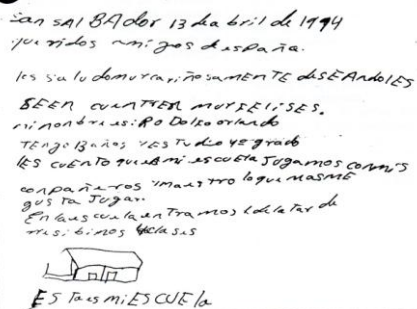 san sAlBAdor 13 de abril de 1994
queridos amigos de españa.
les saludo muy cariñosaMENTE dESEAndolES
SEEN cuENTREN muy FELISES.
mi nombre es: RoDolfo orlando
TENgo 13 años y ESTudio 4º grado
lES cuENTo que EN mi escuEla Jugamos con mis
compañeros y maestro lo que mas ME
gusTa Jugar.
En la escuela enTramos 1 de la tarde
resibimos 4 clases
ESTa es mi ESCUEla